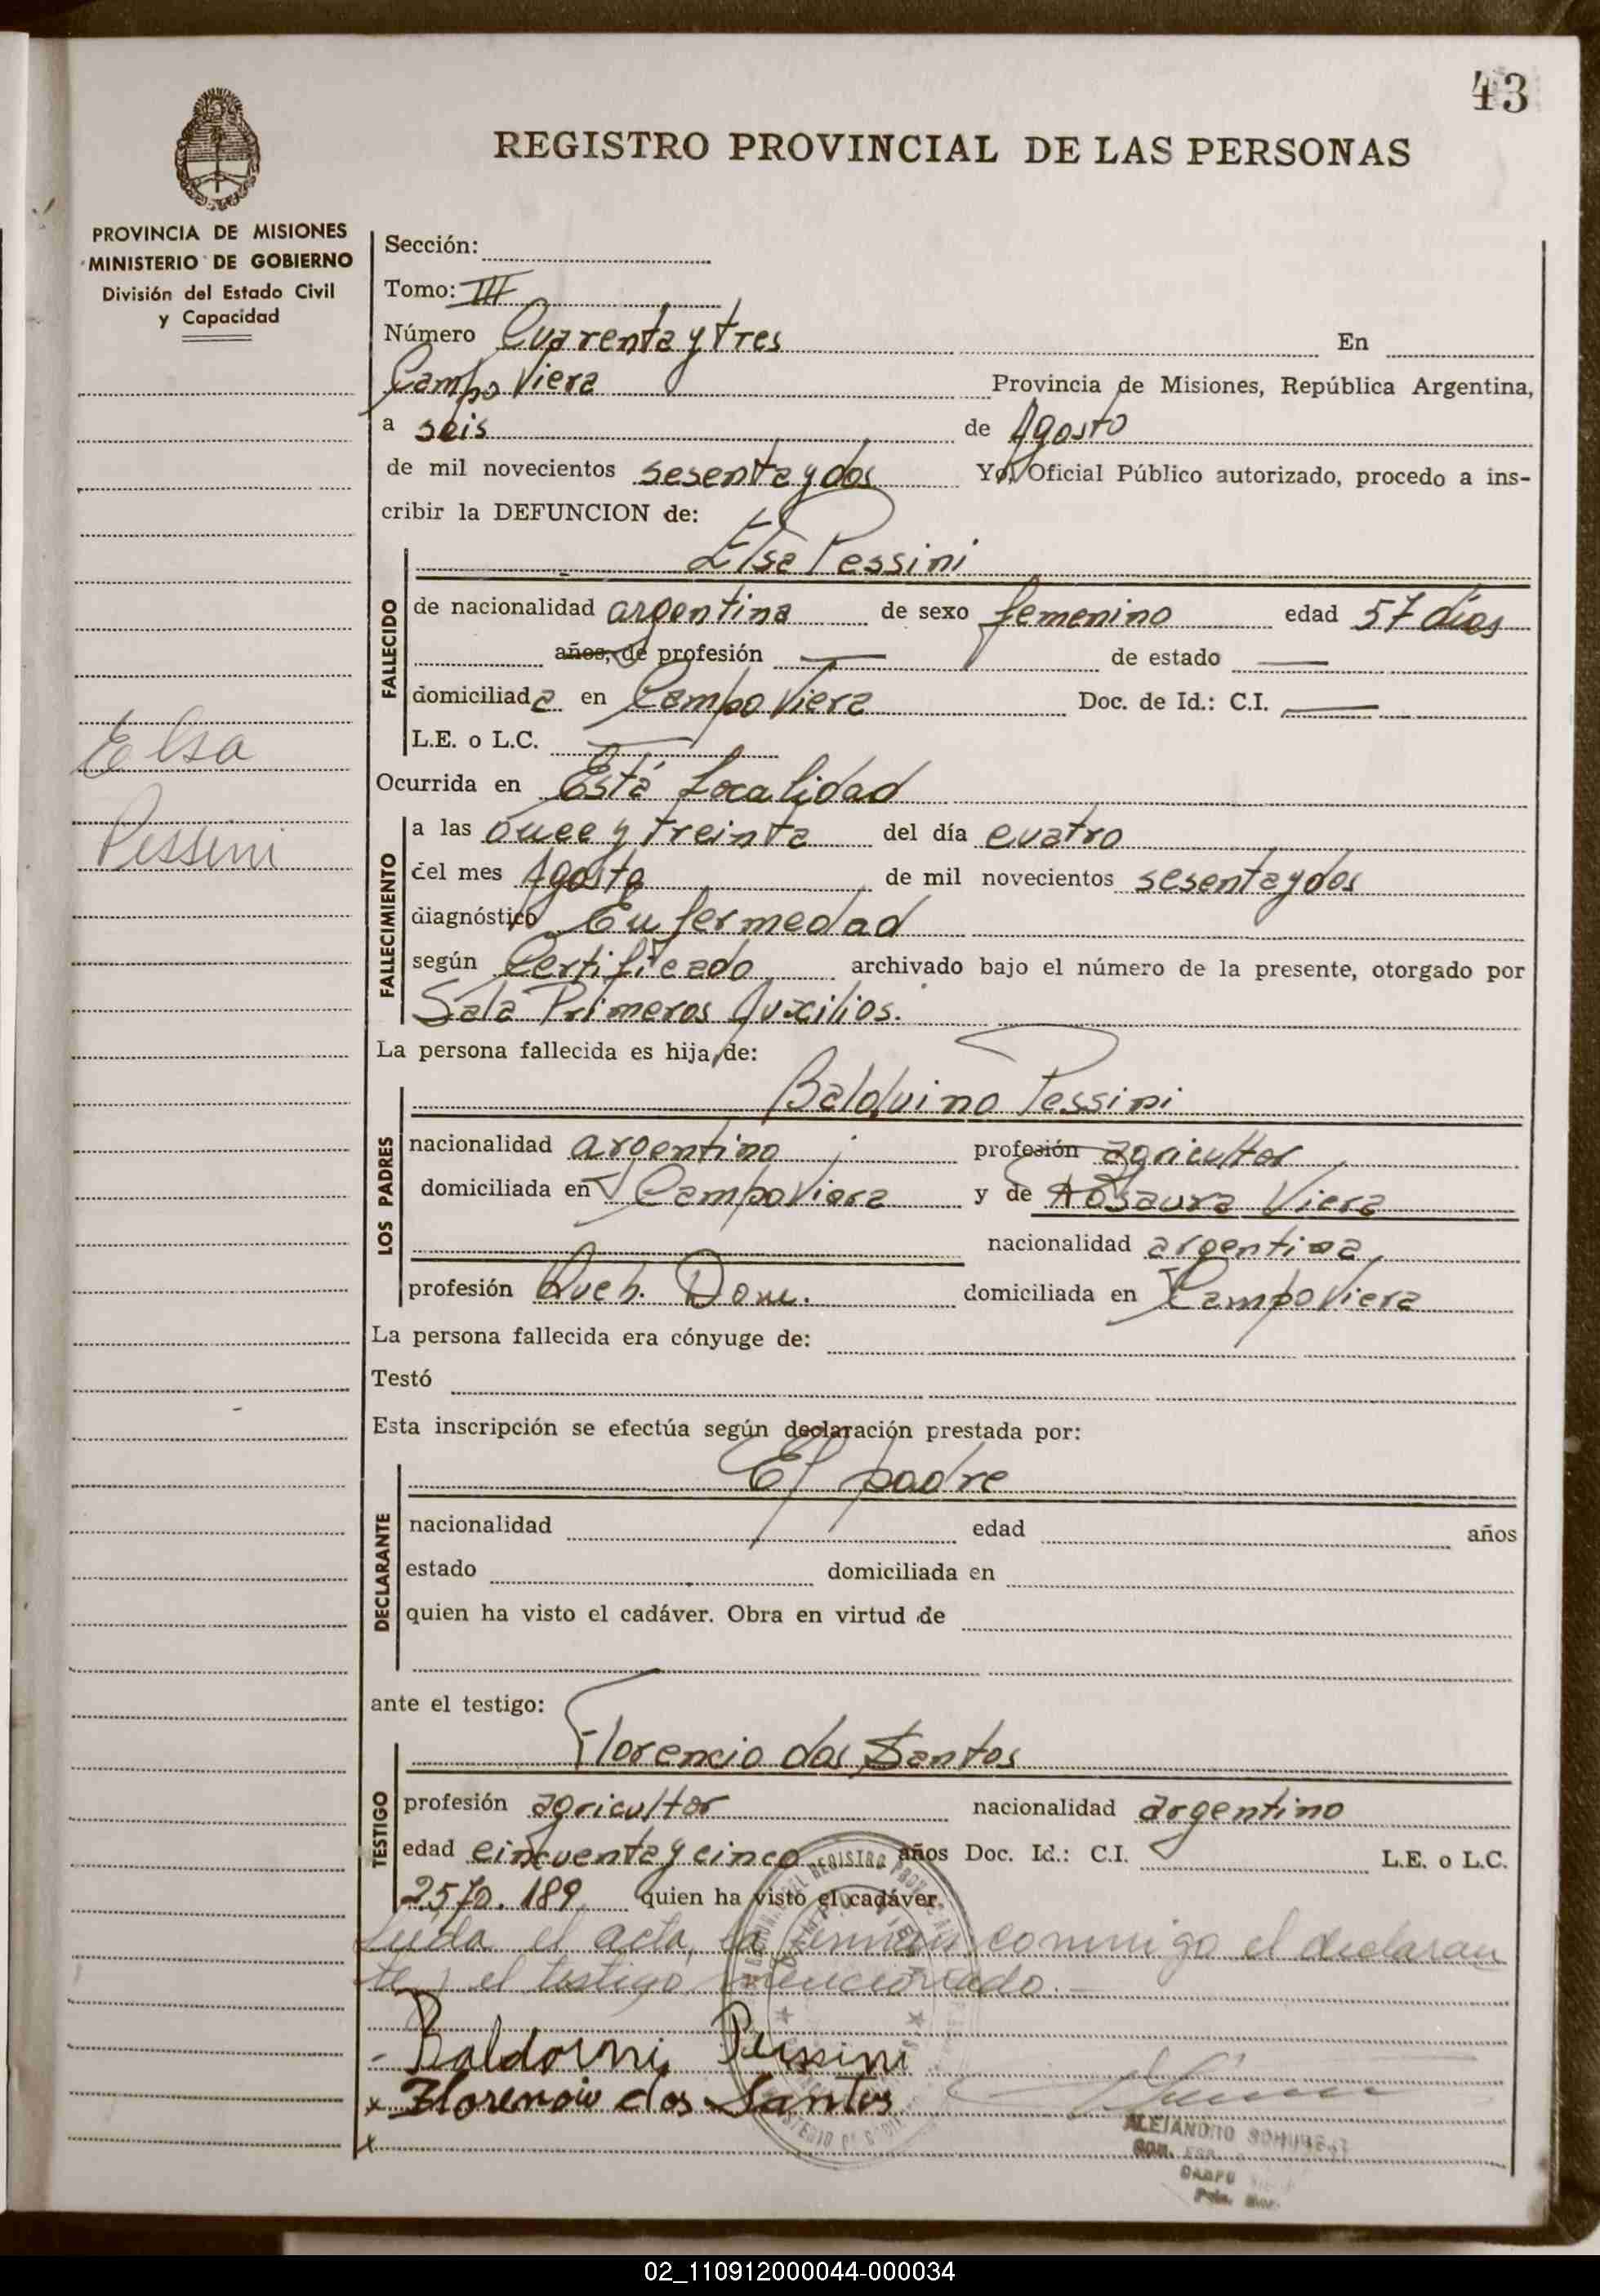 43
REGISTRO PROVINCIAL DE LAS PERSONAS
PROVINCIA DE MISIONES
MINISTERIO DE GOBIERNO
División del Estado Civil
y Capacidad
Elsa
Pessini
Sección:
Tomo: III
Número Cuarenta y tres En
Campo Viera Provincia de Misiones, República Argentina,
a seis de Agosto
de mil novecientos sesenta y dos Yo, Oficial Público autorizado, procedo a ins-
cribir la DEFUNCION de:
Elsa Pessini
FALLECIDO
de nacionalidad argentina de sexo femenino edad 57 días
años, de profesión — de estado —
domiciliada en Campo Viera Doc. de Id.: C.I. —
L.E. o L.C. —
Ocurrida en Está Localidad
FALLECIMIENTO
a las once y treinta del día cuatro
del mes Agosto de mil novecientos sesenta y dos
diagnóstico Enfermedad
según Certificado archivado bajo el número de la presente, otorgado por
Sala Primeros Auxilios.
La persona fallecida es hija de:
LOS PADRES
Balduino Pessini
nacionalidad argentino profesión agricultor
domiciliada en Campo Viera y de Rosaura Viera
nacionalidad argentina
profesión Queh. Dom. domiciliada en Campo Viera
La persona fallecida era cónyuge de:
Testó
Esta inscripción se efectúa según declaración prestada por:
DECLARANTE
El padre
nacionalidad edad años
estado domiciliada en
quien ha visto el cadáver. Obra en virtud de
ante el testigo:
TESTIGO
Florencio dos Santos
profesión agricultor nacionalidad argentino
edad cincuenta y cinco años Doc. Id.: C.I. L.E. o L.C.
2570.189 quien ha visto el cadáver.
Leída el acta, la firman conmigo el declaran
te y el testigo mencionado.-
- Baldoini Pessini
x Florencio dos Santos
x
ALEJANDRO
CAMPO
02_110912000044-000034